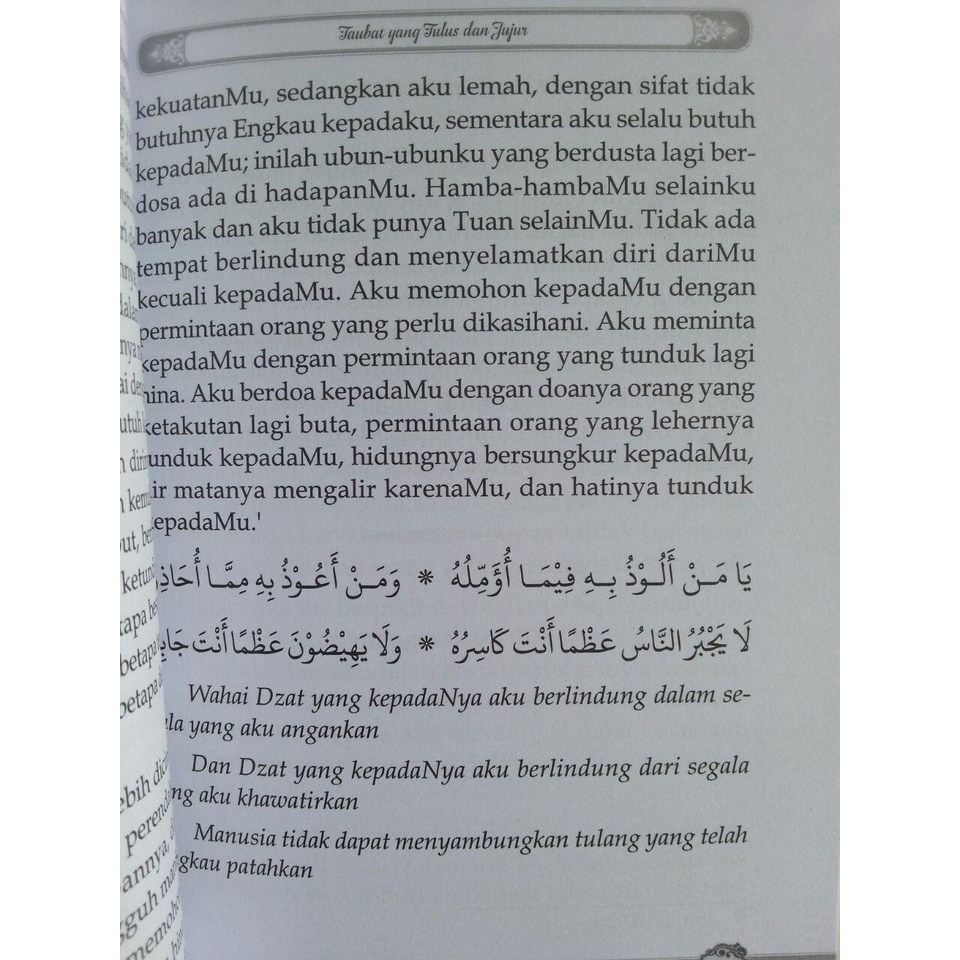 Taubat yang Tulus dan Jujur
kekuatanMu, sedangkan aku lemah, dengan sifat tidak
butuhnya Engkau kepadaku, sementara aku selalu butuh
kepadaMu; inilah ubun-ubunku yang berdusta lagi ber-
dosa ada di hadapanMu. Hamba-hambaMu selainku
banyak dan aku tidak punya Tuan selainMu. Tidak ada
tempat berlindung dan menyelamatkan diri dariMu
kecuali kepadaMu. Aku memohon kepadaMu dengan
permintaan orang yang perlu dikasihani. Aku meminta
kepadaMu dengan permintaan orang yang tunduk lagi
hina. Aku berdoa kepadaMu dengan doanya orang yang
ketakutan lagi buta, permintaan orang yang lehernya
tunduk kepadaMu, hidungnya bersungkur kepadaMu,
air matanya mengalir karenaMu, dan hatinya tunduk
kepadaMu.'
يَا مَـنْ أَلُـوْذُ بِـهِ فِيْمَـا أُؤَمِّلُهُ * وَمَـنْ أَعُـوْذُ بِهِ مِمَّـا أُحَاذِ
لَا يَجْبُرُ النَّاسُ عَظْمًا أَنْتَ كَاسِرُهُ * وَلَا يَهِيْضُوْنَ عَظْمًا أَنْتَ جَابِ
Wahai Dzat yang kepadaNya aku berlindung dalam se-
ala yang aku angankan
Dan Dzat yang kepadaNya aku berlindung dari segala
ng aku khawatirkan
Manusia tidak dapat menyambungkan tulang yang telah
gkau patahkan